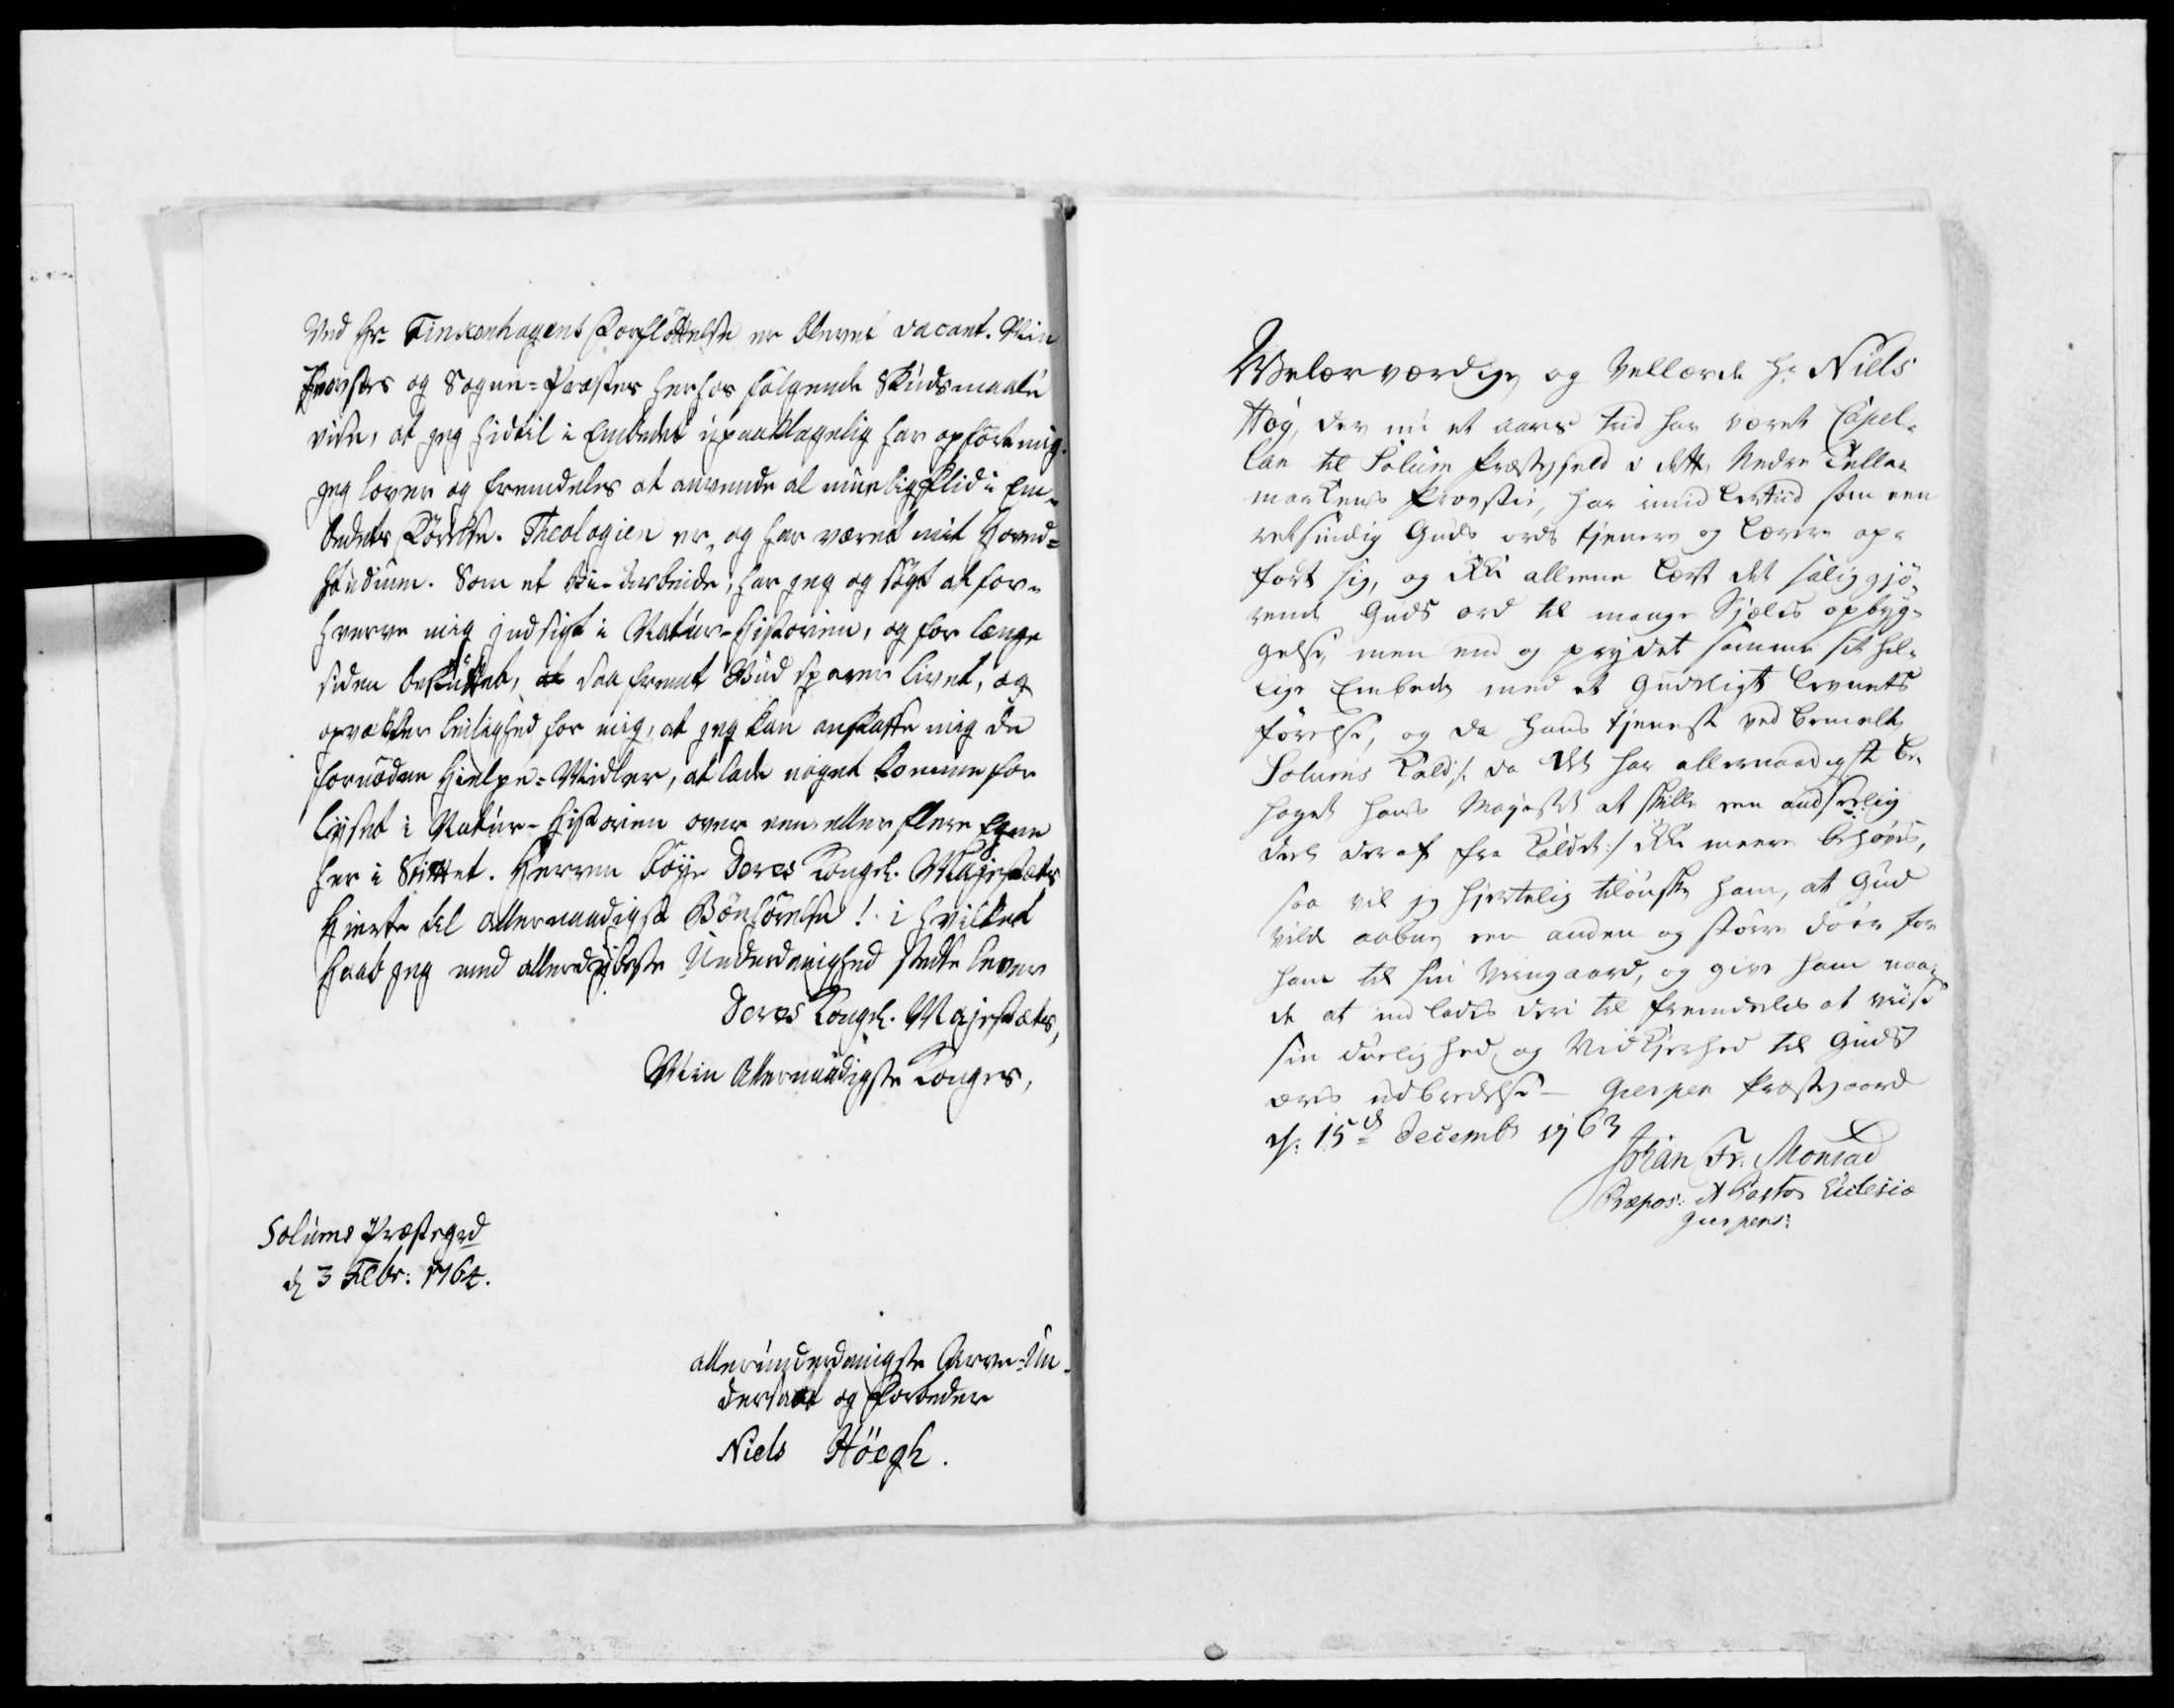 Ved Hr. Finkenhagens Forflöttelse er blevet vacant. Min
Provstes og Sogne-Præstes herhos fölgende Skudsmaale
vise, at jeg hidtil i Embedet upaaklagelig har opfört mig.
jeg lover og fremdeles at anvende al muelig flid i Em-
bedets Förelse. Theologien er, og har været mit Hoved-
studium. Som et Bie-Arbeide, har jeg og sögt at for-
hverve mig Indsigt i Natur-Historien, og for længe
siden besluttet, at saa fremt Gud sparer livet, og
opvækker leilighed for mig, at jeg kan anskaffe mig de
fornödne Hielpe-Midler, at lade noget komme for
lyset i Natur-Historien over een eller flere Egne
her i Stiftet. Herren Föye Deres Kongel. Majestæts
Hierte til allernaadigst Bönhörelse! i hvilket
Haab jeg med allerdybeste Underdanighed stedse lever
Deres Kongel. Majestæts,
Min Allernaadigste Konges,
Solums Præstegrd
d. 3 Febr: 1764.
allerunderdanigste Arve-Un-
dersaat og Forbeder
Niels Höegh.
Welærværdige og Vellærde Hr. Niels
Høg, der nu et aars tiid har været Capel-
lan til Solum Præstegield i dette Nedre Telle-
markens Provstie, har imidlertiid som een
retsindig Guds ords tjenere og Lærere op-
fört sig, og ikke alleene lært det saliggjö-
rende Guds ord til mange Sjæles opbyg-
gelse, men end og prydet samme sit hel-
lige Embede med et Gudeligt Levnets
förelse, og da hans tjeneste ved bemelte
Solums Kald /: da det har allernaadigst be-
haget hans Majestet at skille een andseelig
deel deraf fra Kaldet :/ ikke meere behøves,
saa vil jeg hjertelig tilönske ham, at Gud
vilde aabne een anden og större döer for
ham til sin Viingaard, og give ham naa-
de at indlades deri til fremdeles at viise
sin duelighed og Nidkjerhed til Guds
æres udbredelse - Gierpen Præstegaard
d: 15de Decembr 1763
Johan Fr. Monrad
Præpos: et Pastor Ecclesiæ
Gierpens: